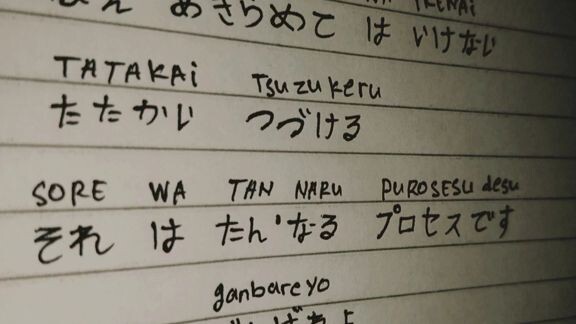 IKENAI
あきらめて は いけない
TATAKAi Tsuzukeru
たたかい つづける
SORE WA TAN NARU PUROSESU desu
それ は たん'なる プロセスです
ganbareyo